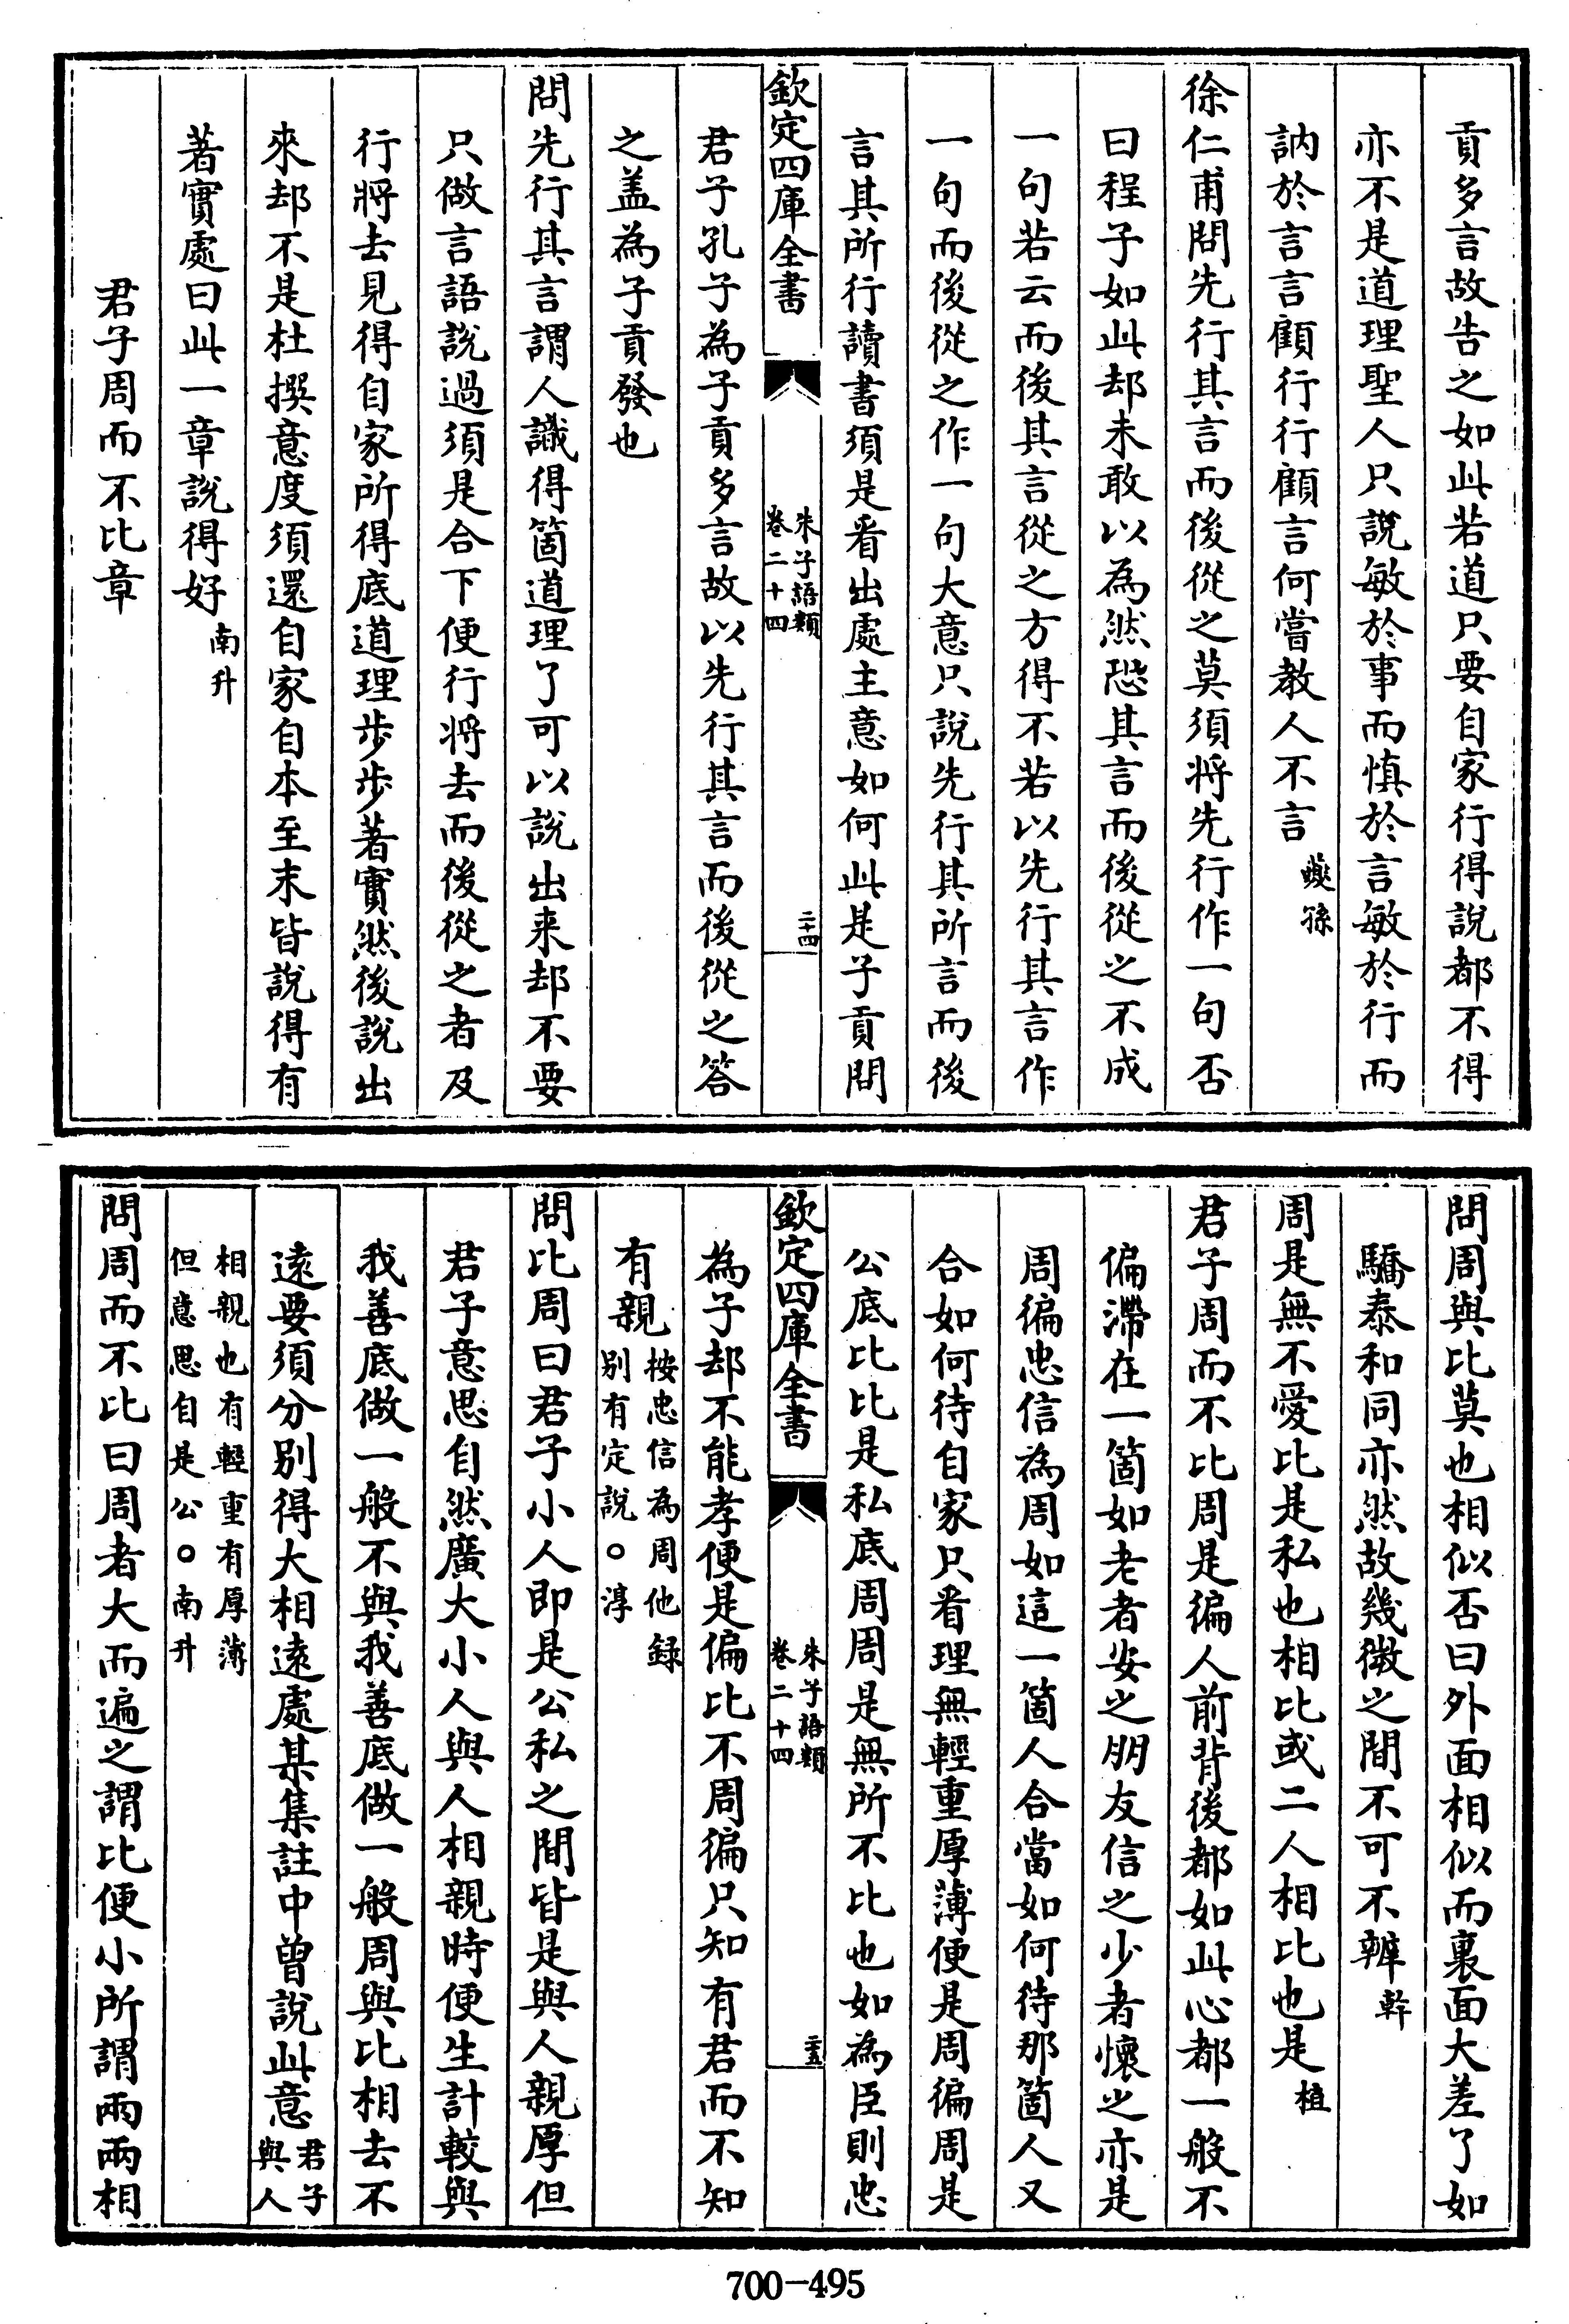 貢多言故告之如此若道只要自家行得說都不得
亦不是道理聖人只說敏於事而慎於言敏於行而
訥於言言顧行行顧言何嘗教人不言 㽦孫
徐仁甫問先行其言而後從之莫須將先行作一句否
曰程子如此却未敢以為然恐其言而後從之不成
一句若云而後其言從之方得不若以先行其言作
一句而後從之作一句大意只說先行其所言而後
言其所行讀書須是看出處主意如何此是子貢問
欽定四庫全書
朱子語類
卷二十四
二十四
君子孔子為子貢多言故以先行其言而後從之答
之盖為子貢發也
問先行其言謂人識得箇道理了可以說出来却不要
只做言語說過須是合下便行將去而後從之者及
行將去見得自家所得底道理步步著實然後說出
來却不是杜撰意度須還自家自本至末皆說得有
著實處曰此一章說得好 南升
君子周而不比章
問周與比莫也相似否曰外面相似而裏面大差了如
驕泰和同亦然故幾微之間不可不辨 榦
周是無不愛比是私也相比或二人相比也是 植
君子周而不比周是徧人前背後都如此心都一般不
偏滯在一箇如老者安之朋友信之少者懷之亦是
周徧忠信為周如這一箇人合當如何待那箇人又
合如何待自家只看理無輕重厚薄便是周徧周是
公底比比是私底周周是無所不比也如為臣則忠
欽定四庫全書
朱子語類
卷二十四
二十五
為子却不能孝便是偏比不周徧只知有君而不知
有親 按忠信為周他録
別有定說○淳
問比周曰君子小人即是公私之間皆是與人親厚但
君子意思自然廣大小人與人相親時便生計較與
我善底做一般不與我善底做一般周與比相去不
遠要須分別得大相遠處某集註中曾說此意 君子
與人
相親也有輕重有厚薄
但意思自是公○南升
問周而不比曰周者大而遍之謂比便小所謂兩兩相
700-495